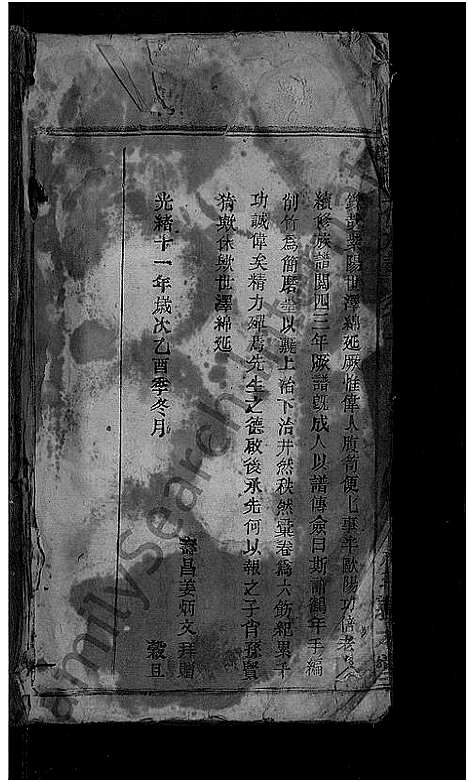 世澤綿延厥惟偉人腹笥便七事半歐陽功倍老
續修族譜閱四三年厥譜旣成人以譜傳僉曰斯譜鶴年手編
削竹爲簡磨以上治下治井然秩然彙卷爲六飭紀畢千
功誠偉矣精力殫焉先生之德啟後承先何以報之子肖孫賢
猗歟休歟世澤綿延
光緒十一年歲次乙酉季冬月
壽昌姜炳文拜贈
穀旦
FamilySearch